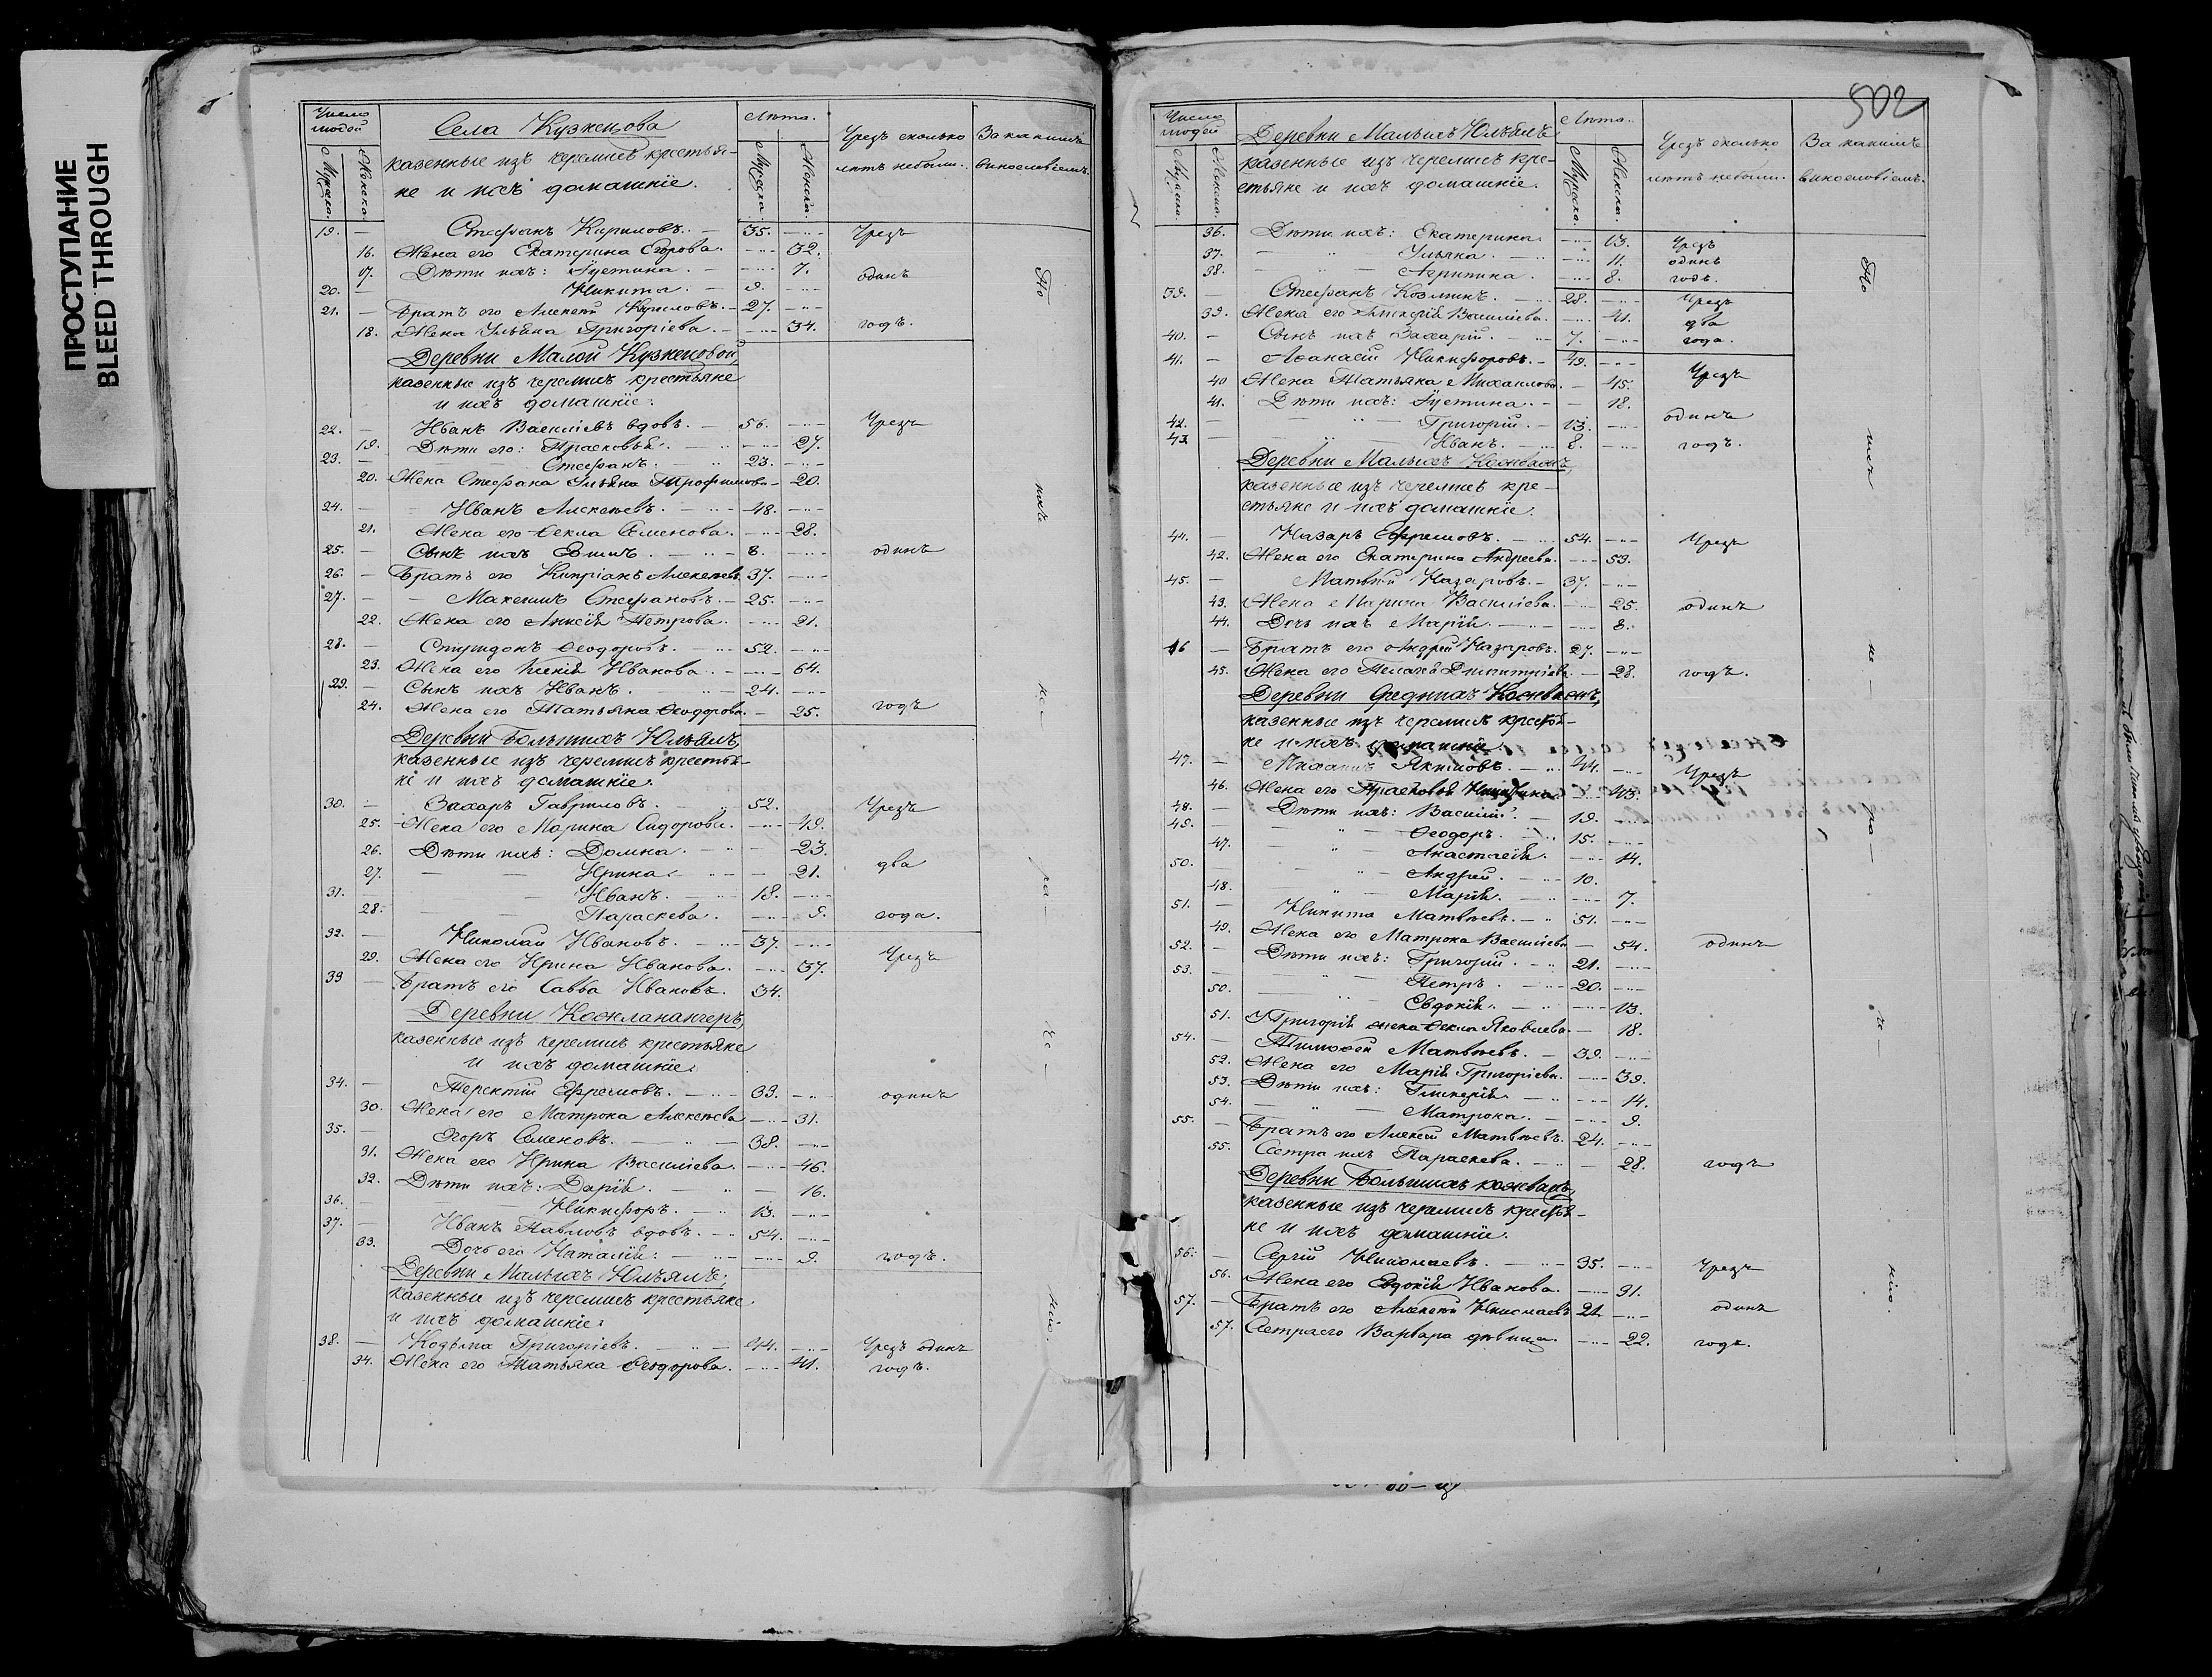 ПРОСТУПАНИЕ
BLEED THROUGH
Число людей
Мужска.
Женска.
Села Кузнецова
казенные изъ черемисъ крестья-
не и ихъ домашніе.
Лѣта.
Мужска.
Женска.
Чрезъ сколько
лѣтъ небыли.
За какимъ
винословіемъ.
19. — Стефанъ Кириловъ. — 35. —
16. Жена его Екатерина Егорова. — 32.
17. Дѣти ихъ: Іустина. — 7.
20. — Никита. — 9. —
21. — Братъ его Алексѣй Кириловъ. — 27. —
18. Жена Ульяна Григоріева. — 34.
Чрезъ
одинъ
годъ.
Деревни Малой Кузнецовой
казенные изъ черемисъ крестьяне
и ихъ домашніе:
22. — Иванъ Василіевъ вдовъ. — 56. —
19. Дѣти его: Прасковья. — 27.
23. — Стефанъ. — 23. —
20. Жена Стефана Ульяна Трофимова — 20.
24. — Иванъ Алексѣевъ. — 48. —
21. Жена его Ѳекла Семенова. — 28.
25. — Сынъ ихъ — 8. —
26. — Братъ его Кипріанъ Алексѣевъ. 37. —
27. — Максимъ Стефановъ. — 25. —
22. Жена его Петрова. — 21.
28. — Ѳеодоровъ. — 52. —
23. Жена его Иванова. — 64.
29. — Сынъ ихъ Иванъ. — 24. —
24. Жена его Татьяна Ѳеодорова. — 25.
Чрезъ
одинъ
годъ
Деревни Большихъ Юльялъ,
казенные изъ черемисъ крестья-
не и ихъ домашніе.
30. — Захаръ Гавриловъ. — 52.
25. Жена его Марина Сидорова. — 49.
26. Дѣти ихъ: Домна. — 23.
27. — Ирина. — 21.
31. — Иванъ. — 18. —
28. — Параскева. — 9.
Чрезъ
два
года.
32. — Николай Ивановъ. — 37. —
29. Жена его Ирина Иванова. — 37.
33 — Братъ его Савва Ивановъ. 34.
Деревни Кожланангеръ,
казенные изъ черемисъ крестьяне
и ихъ домашніе.
34. — Терентій Ефремовъ. — 33. —
30. Жена его Матрона Алексѣева — 31.
35. — Егоръ Семеновъ. — 38. —
31. Жена его Ирина Василіева. — 46.
32. Дѣти ихъ: Дарія. — 16.
36. — Никифоръ. — 13. —
37. — Иванъ Павловъ вдовъ. — 54. —
33. Дочь его Наталія. — 9.
Чрезъ
одинъ
годъ.
Деревни Малыхъ Юльялъ,
казенные изъ черемисъ крестьяне
и ихъ домашніе:
38. — Козьма Григоріевъ. — 44. —
34. Жена его Татьяна Ѳеодорова. — 41.
Чрезъ одинъ
годъ.
По
ихъ
не
ра
че
нію.
502
Число людей
Мужска.
Женска.
Деревни Малыхъ Юльялъ
казенные изъ черемисъ кре-
стьяне и ихъ домашніе.
Лѣта.
Мужска.
Женска.
Чрезъ сколько
лѣтъ небыли.
За какимъ
винословіемъ.
36. Дѣти ихъ: Екатерина — 13.
37. — Ульяна. — 11.
38. — Агрипина. — 8.
Чрезъ
одинъ
годъ.
39. — Стефанъ Козминъ. — 28. —
39. Жена его Василіева. — 41.
40. — Сынъ ихъ Захарій. — 7. —
Чрезъ
два
года.
41. — Аѳанасій Никифоровъ. — 49. —
40 Жена Татьяна Михаилова. — 45.
41. Дѣти ихъ: Іустина. — 18.
42. — Григорій. — 13. —
43 — Иванъ. — 8. —
Чрезъ
одинъ
годъ.
Деревни Малыхъ
казенные изъ черемисъ кре-
стьяне и ихъ домашніе.
44. — Назаръ Ефремовъ. — 54. —
42. Жена его Екатерина Андреева. — 53.
45. — Матвѣй Назаровъ. — 37. —
43. Жена Марина Василіева. — 25.
44. Дочь ихъ Марія. — 8.
46 — Братъ его Андрей Назаровъ. 27. —
45. Жена его Дмитріева. — 28.
Чрезъ
одинъ
годъ.
Деревни Среднихъ
казенные изъ черемисъ крестья-
не и ихъ домашніе.
47. — Михаилъ Якимовъ. — 44. —
46. Жена его — 43.
48. — Дѣти ихъ: Василій. — 19. —
49. — Ѳеодоръ. — 15. —
47. — Анастасія. — 14.
50. — Андрей. — 10.
48. — Марія. — 7.
51. — Никита Матвѣевъ. — 51. —
49. Жена его Матрона Василіева — 54.
52. — Дѣти ихъ: Григорій. — 21. —
53. — Петръ. — 20. —
50. — Евдокія. — 13.
51. Григорія жена Ѳекла Яковлева. — 18.
54. — Тимоѳей Матвѣевъ. — 39. —
52. Жена его Марія Григоріева. — 39.
53. Дѣти ихъ: Гликерія. — 14.
54. — Матрона. — 9.
55. — Братъ его Алексѣй Матвѣевъ. 24. —
55. Сестра ихъ Параскева. — 28.
Чрезъ
одинъ
годъ
Деревни Большихъ
казенные изъ черемисъ крестья-
не и ихъ домашніе.
56. — Сергій Николаевъ. — 35. —
56. Жена его Евдокія Иванова. — 31.
57. — Братъ его Алексѣй Николаевъ 21 —
57. Сестра его Варвара дѣвица. — 22.
Чрезъ
одинъ
годъ.
По
ихъ
не —
ра —
че —
нію.